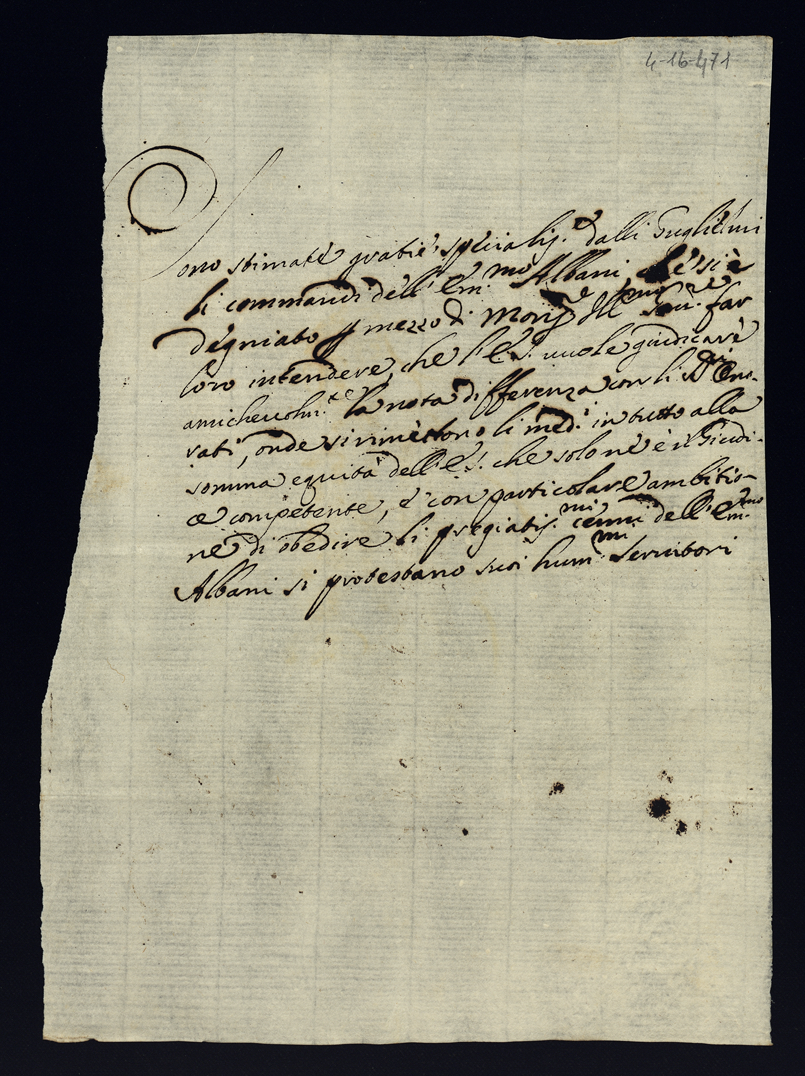 4-16-471
Sono stimate gratie spetialis.e dalli Guglielmi
li commandi dell'Em.mo Albani che si è
degniato p mezzo di Mons.r Ill.mo far
loro intendere, che l'E. S. vuole giudicare
amichevolm.te la nota differenza con li SS.ri Ono-
rati, onde si rimettono li med.i in tutto alla
somma equità dell'E. S. che solo ne è il Giudi-
ce competente, e con particolare ambitio-
ne di obedire li pregiatis.mi cenni dell'Em.mo
Albani si protestano suoi hum.mi servitori